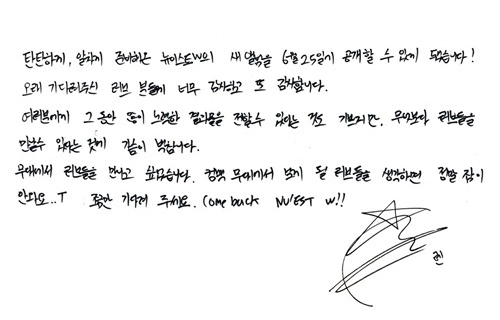 탄탄하게, 알차게 준비해온 뉴이스트W의 새 앨범을 6월 25일에 공개할 수 있게 됐습니다!
오래 기다려주신 러브 분들께 너무 감사하고 또 감사합니다.
여러분에게 그 동안 많이 노력한 결과물을 전할 수 있다는 것도 기쁘지만, 무엇보다 러브들을
만날 수 있다는 것에 가슴이 벅찹니다.
무대에서 러브들을 만나고 싶었습니다. 컴백 무대에서 보게 될 러브들을 생각하면 정말 잠이
안와요..T 조금만 기다려 주세요. Come back NU'EST W!!
렌